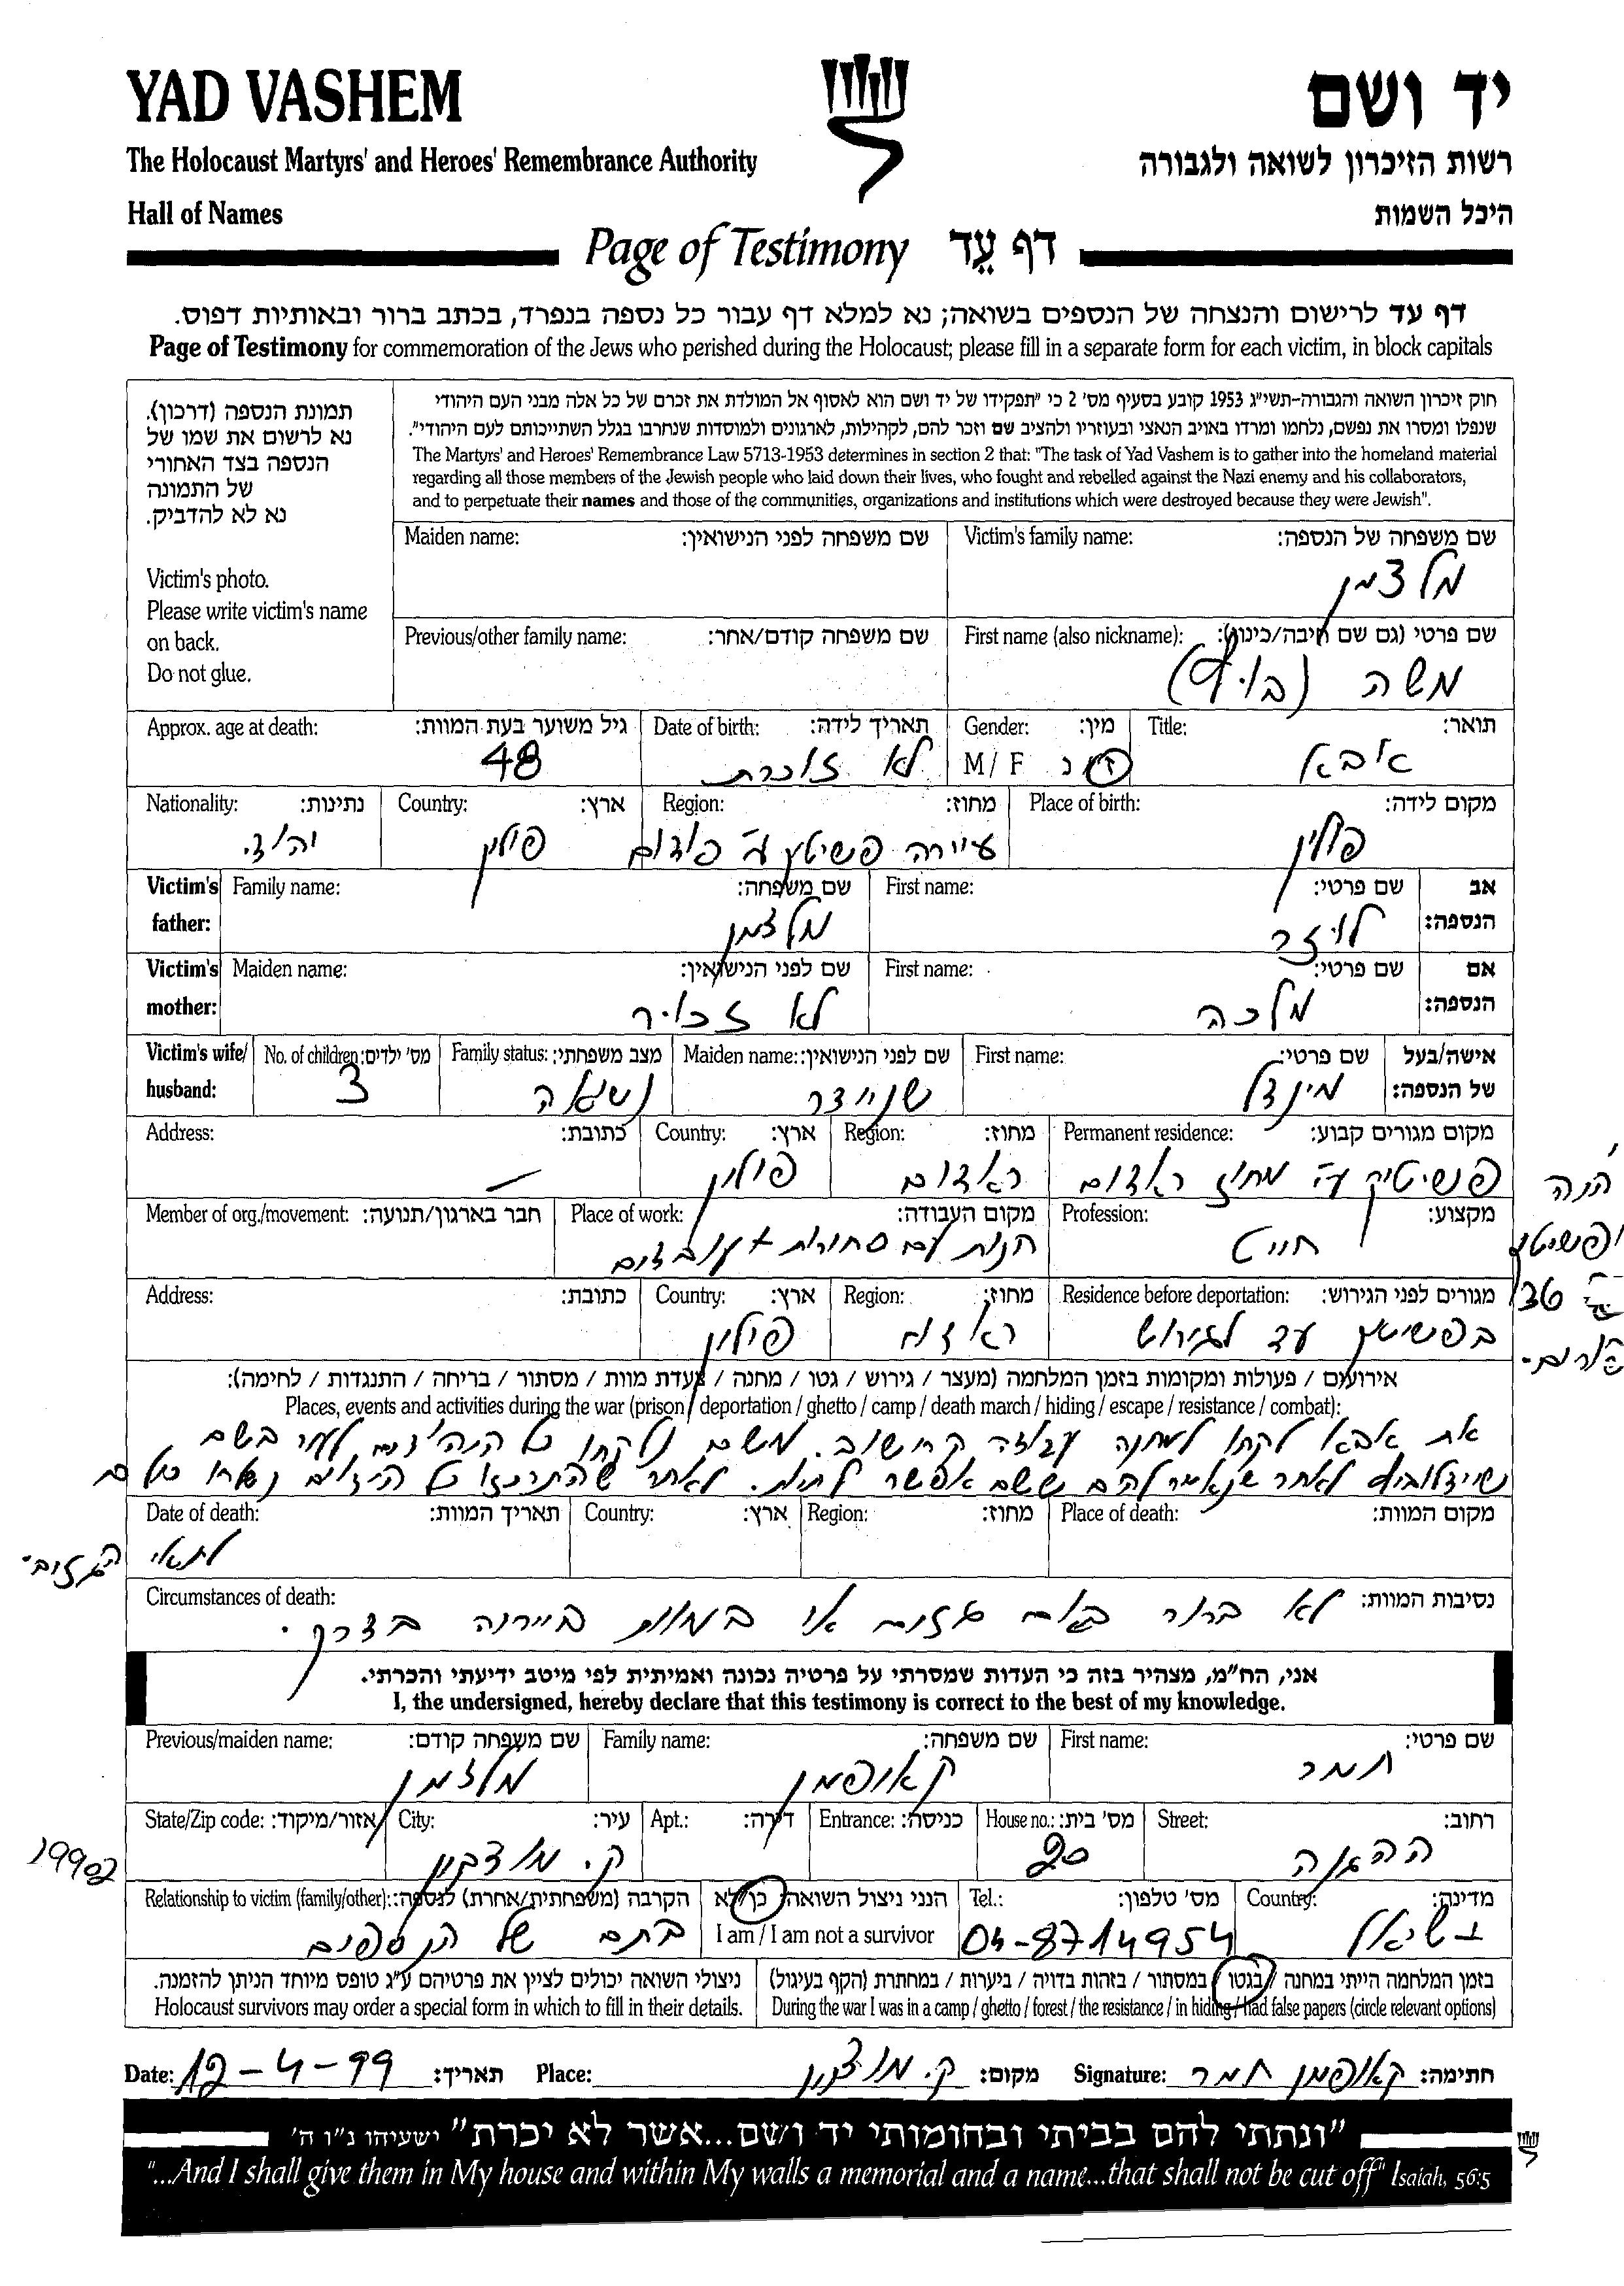 YAD VASHEM
יד ושם
The Holocaust Martyrs' and Heroes' Remembrance Authority
רשות הזיכרון לשואה ולגבורה
Hall of Names
היכל השמות
Page of Testimony דף עֵד
דף עד לרישום והנצחה של הנספים בשואה; נא למלא דף עבור כל נספה בנפרד, בכתב ברור ובאותיות דפוס.
Page of Testimony for commemoration of the Jews who perished during the Holocaust; please fill in a separate form for each victim, in block capitals
תמונת הנספה (דרכון).
נא לרשום את שמו של
הנספה בצד האחורי
של התמונה
נא לא להדביק.
Victim's photo.
Please write victim's name
on back.
Do not glue.
חוק זיכרון השואה והגבורה-תשי"ג 1953 קובע בסעיף מס' 2 כי "תפקידו של יד ושם הוא לאסוף אל המולדת את זכרם של כל אלה מבני העם היהודי
שנפלו ומסרו את נפשם, נלחמו ומרדו באויב הנאצי ובעוזריו ולהציב שם וזכר להם, לקהילות, לארגונים ולמוסדות שנחרבו בגלל השתייכותם לעם היהודי".
The Martyrs' and Heroes' Remembrance Law 5713-1953 determines in section 2 that: "The task of Yad Vashem is to gather into the homeland material
regarding all those members of the Jewish people who laid down their lives, who fought and rebelled against the Nazi enemy and his collaborators,
and to perpetuate their names and those of the communities, organizations and institutions which were destroyed because they were Jewish".
שם משפחה של הנספה: Victim's family name:
מלצמן
שם משפחה לפני הנישואין: Maiden name:
שם פרטי (גם שם חיבה/כינוי): First name (also nickname):
משה
שם משפחה קודם/אחר: Previous/other family name:
תואר: Title:
אבא
מין: Gender:
ז / נ M / F
תאריך לידה: Date of birth:
לא זוכרת
גיל משוער בעת המוות: Approx. age at death:
48
מקום לידה: Place of birth:
פולין
מחוז: Region:
עיירה פשיטיק ע"י
ארץ: Country:
פולין
נתינות: Nationality:
יהודי
אב הנספה: Victim's father:
שם פרטי: First name:
לויזר
שם משפחה: Family name:
מלצמן
אם הנספה: Victim's mother:
שם פרטי: First name:
מלכה
שם לפני הנישואין: Maiden name:
לא זכור
אישה/בעל של הנספה: Victim's wife/husband:
שם פרטי: First name:
מינדל
שם לפני הנישואין: Maiden name:
שניידר
מצב משפחתי: Family status:
נשוא
מס' ילדים: No. of children:
3
מקום מגורים קבוע: Permanent residence:
פשיטיק ע"י מחוז ראדום
מחוז: Region:
ראדום
ארץ: Country:
פולין
כתובת: Address:
—
מקצוע: Profession:
חייט
מקום העבודה: Place of work:
חנות עם סחורות + עובדים
חבר בארגון/תנועה: Member of org./movement:
מגורים לפני הגירוש: Residence before deportation:
בפשיטיק עד לגירוש
מחוז: Region:
ארץ: Country:
פולין
כתובת: Address:
אירועים / פעולות ומקומות בזמן המלחמה (מעצר / גירוש / גטו / מחנה / צעדת מוות / מסתור / בריחה / התנגדות / לחימה):
Places, events and activities during the war (prison / deportation / ghetto / camp / death march / hiding / escape / resistance / combat):
את אבא לקחו למחנה עבודה קרישוב. משם נלקחו כל היהודים לעיר בשם
לאחר שנאמר להם ששם אפשר לחיות. לאחר שהתרכזו כל היהודים נשלחו כולם
לתאי הגזים.
מקום המוות: Place of death:
מחוז: Region:
ארץ: Country:
תאריך המוות: Date of death:
נסיבות המוות: Circumstances of death:
לא ברור באם גזים או במוות ביריה בדרך.
אני, הח"מ, מצהיר בזה כי העדות שמסרתי על פרטיה נכונה ואמיתית לפי מיטב ידיעתי והכרתי.
I, the undersigned, hereby declare that this testimony is correct to the best of my knowledge.
שם פרטי: First name:
תמר
שם משפחה: Family name:
קאופמן
שם משפחה קודם: Previous/maiden name:
מלצמן
רחוב: Street:
ההגנה
מס' בית: House no.:
20
כניסה: Entrance:
דירה: Apt.:
עיר: City:
ק. מוצקין
אזור/מיקוד: State/Zip code:
מדינה: Country:
ישראל
מס' טלפון: Tel.:
04-8714954
הנני ניצול השואה: כן/לא
I am / I am not a survivor
הקרבה (משפחתית/אחרת) לנספה: Relationship to victim (family/other):
בתם של הנספים
בזמן המלחמה הייתי במחנה / בגטו / במסתור / בזהות בדויה / ביערות / במחתרת (הקף בעיגול)
During the war I was in a camp / ghetto / forest / the resistance / in hiding / had false papers (circle relevant options)
ניצולי השואה יכולים לציין את פרטיהם ע"ג טופס מיוחד הניתן להזמנה.
Holocaust survivors may order a special form in which to fill in their details.
חתימה: קאופמן תמר Signature:
מקום: ק. מוצקין Place:
תאריך: 12-4-99 Date:
"ונתתי להם בביתי ובחומותי יד ושם...אשר לא יכרת" ישעיהו נ"ו ה'
"...And I shall give them in My house and within My walls a memorial and a name...that shall not be cut off" Isaiah, 56:5